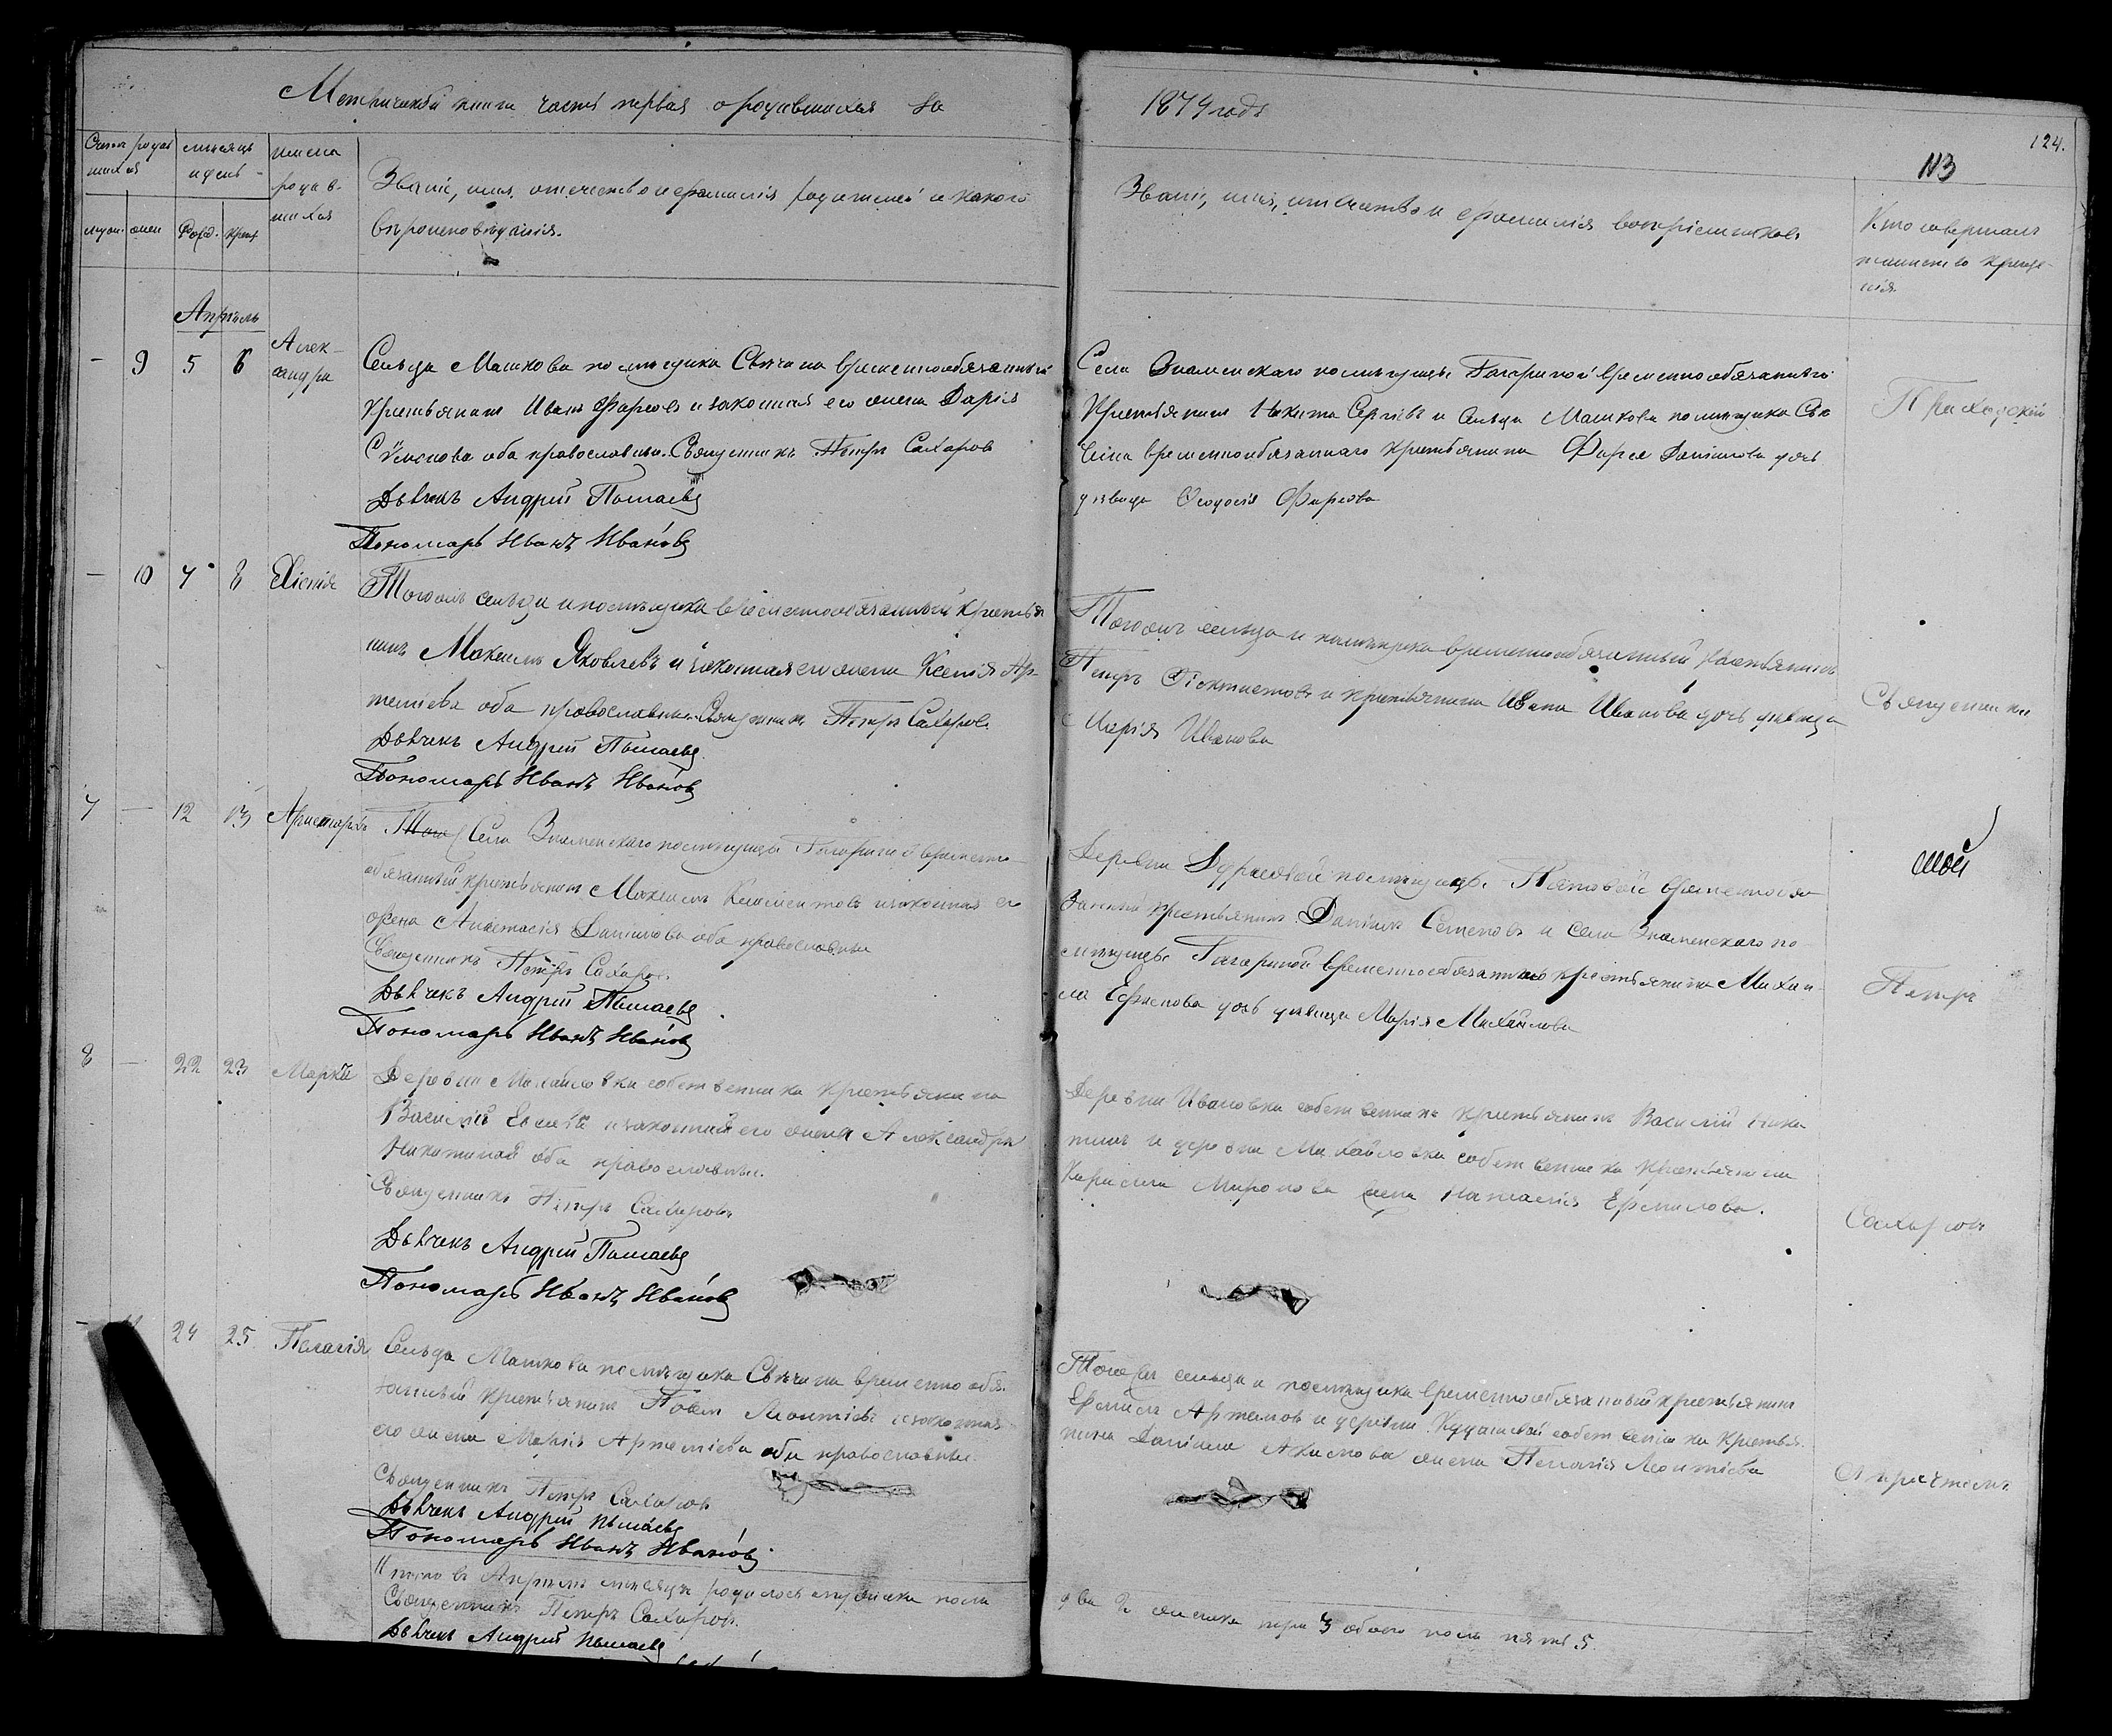 Метрической книги часть первая о родившихся за 1874 года
124.
113
Счетъ родив
шихся
месяцъ
и день
имена
родив-
шихся
Званіе, имя, отечество и фамилія родителей и какого
вѣроисповѣданія.
Званіе, имя, отчество и фамилія воспріемниковъ
Кто совершалъ
таинство креще-
нія
муж. жен Рожд. крещ.
Апрѣль
- 9 5 6 Алек-
сандра
Сельца Машкова помѣщика Свѣчина временнообязанный
крестьянинъ Иванъ Фирсовъ и законная его жена Дарія
Сѵмеонова оба православные. Священникъ Петръ Сахаровъ
Дьячекъ Андрей
Пономарь Иванъ Ивановъ
Села Знаменскаго помѣщицы Гагариной временнообязанный
Крестьянинъ Никита Сергѣевъ и сельца Машкова помѣщика Свѣ
чина временнообязаннаго крестьянина Фирса Данилова дочь
дѣвица Ѳеодосія Фирсова
Приходскій
- 10 7 8 Ксенія
Тогожъ сельца и помѣщика временнообязанный крестья
нинъ Максимъ Яковлевъ и законная его жена Ксенія Ар-
теміева оба православные. Священникъ Петръ Сахаровъ.
Дьячекъ Андрей
Пономарь Иванъ Ивановъ
Тогожъ сельца и помѣщика временнообязанный крестьянинъ
Петръ и крестьянина Ивана Иванова дочь дѣвица
Марія Иванова
Священни
7 - 12 13 Аристархъ
Того Села Знаменскаго помѣщицы Гагариной временно-
обязанный крестьянинъ Максимъ Климентовъ и законная его
жена Анастасія Данилова оба православные
Священникъ Петръ Сахаровъ.
Дьячекъ Андрей
Пономарь Иванъ Ивановъ
Деревни помѣщицы временнообя
занный крестьянинъ Даніилъ Семеновъ и села Знаменскаго по-
мѣщицы Гагариной временнообязаннаго крестьянина Михаи-
ла Ефимова дочь дѣвица Марія Михайлова
Петръ
8 - 22 23 Маркъ
Деревни Михайловки собственника крестьянина
Василій и законная его жена Александра
Никитина оба православные.
Священникъ Петръ Сахаровъ
Дьячекъ Андрей
Пономарь Иванъ Ивановъ
Деревни Ивановки собственникъ крестьянинъ Василій Ники
тинъ и деревни Михайловки собственника крестьянина
Кирилла Миронова жена Наталія Ермилова.
Сахаровъ
- 11 24 25 Пелагія
Сельца Машкова помѣщика Свѣчина временнообя-
занный крестьянинъ Павелъ Леонтіевъ и законная
его жена Марія Артеміева оба православные.
Священникъ Петръ Сахаровъ
Дьячекъ Андрей
Пономарь Иванъ Ивановъ
Тогожъ сельца и помѣщика временнообязанный крестьянинъ
Ермилъ Артемовъ и деревни собственника крестья-
нина Даніила жена Пелагія Леонтіева
съ причтомъ
Итого въ Апрѣлѣ мѣсяцѣ родилось мужска пола
два 2 женска три 3 обоего пола пять 5.
Священникъ Петръ Сахаровъ.
Дьячекъ Андрей